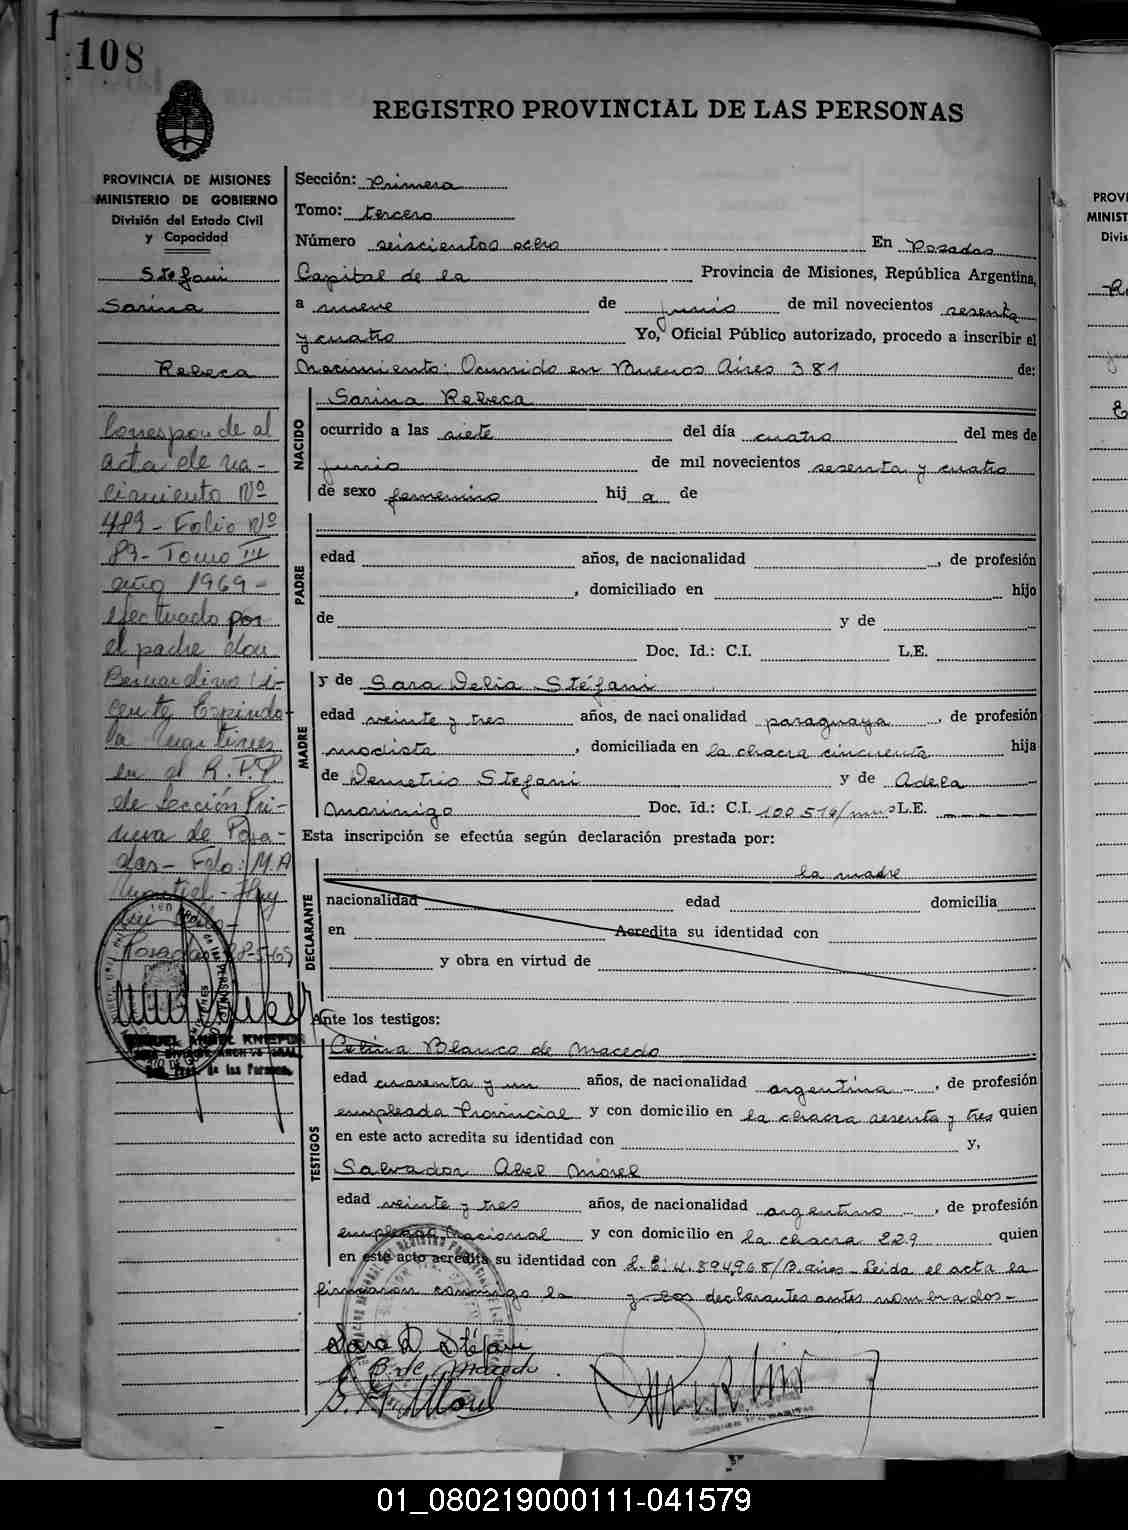 108
REGISTRO PROVINCIAL DE LAS PERSONAS
PROVINCIA DE MISIONES
MINISTERIO DE GOBIERNO
División del Estado Civil
y Capacidad
Stefani
Sarina
Rebeca
Corresponde al
acta de na-
cimiento Nº
483- Folio Nº
83- Tomo III
año 1969-
efectuado por
el padre don
Bernardino Vi-
cente Espindo-
la Martines
en el R.P.P.
de Sección Pri-
mera de Posa-
das- Fdo: M.A
Posadas 28-5-69
Sección: Primera
Tomo: tercero
Número seiscientos ocho En Posadas
Capital de la Provincia de Misiones, República Argentina,
a nueve de junio de mil novecientos sesenta
y cuatro Yo, Oficial Público autorizado, procedo a inscribir el
Nacimiento: Ocurrido en Buenos Aires 381 de:
NACIDO
Sarina Rebeca
ocurrido a las siete del día cuatro del mes de
junio de mil novecientos sesenta y cuatro
de sexo femenino hij a de
PADRE
edad años, de nacionalidad , de profesión
, domiciliado en hijo
de y de
Doc. Id.: C.I. L.E.
MADRE
y de Sara Delia Stéfani
edad veinte y tres años, de nacionalidad paraguaya , de profesión
modista , domiciliada en la chacra cincuenta hija
de Demetrio Stefani y de Adela
Marinigo Doc. id.: C.I. 100.516/mnes L.E.
Esta inscripción se efectúa según declaración prestada por:
DECLARANTE
la madre
nacionalidad edad domicilia
en Acredita su identidad con
y obra en virtud de
Ante los testigos:
TESTIGOS
Celina Blanco de Macedo
edad cuarenta y un años, de nacionalidad argentina , de profesión
empleada Provincial y con domicilio en la chacra sesenta y tres quien
en este acto acredita su identidad con y,
Salvador Abel Morel
edad veinte y tres años, de nacionalidad argentino , de profesión
empleado Nacional y con domicilio en la chacra 229 quien
en este acto acredita su identidad con L.E: 4.894.968/B.aires- Leida el acta la
firmaron conmigo la y los declarantes antes nombrados-
Sara D. Stéfani
C. B. de Macedo
01_080219000111-041579